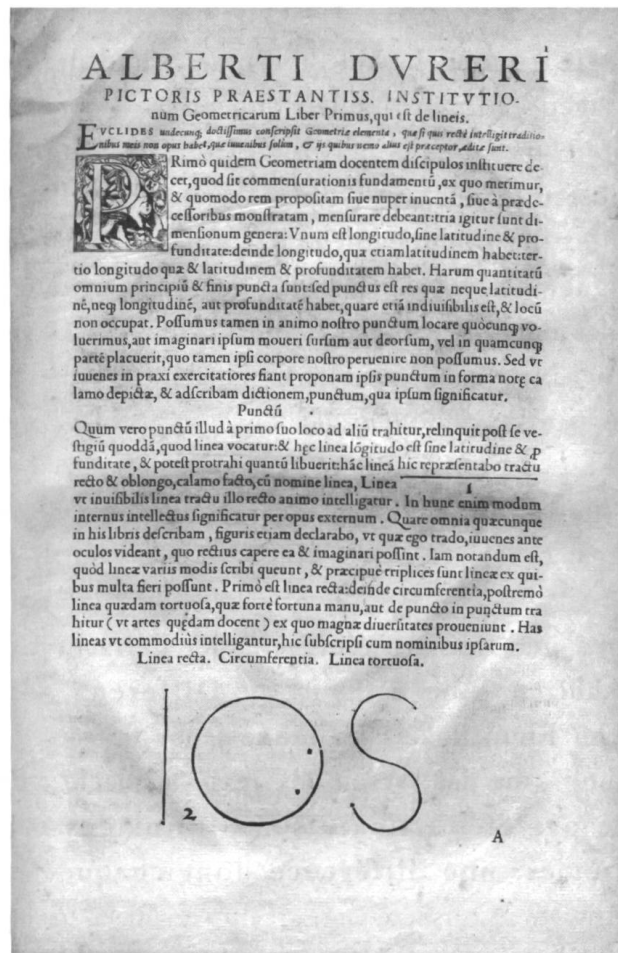 ALBERTI DVRERI
PICTORIS PRAESTANTISS. INSTITVTIO-
num Geometricarum Liber Primus, qui est de lineis.
EVCLIDES undecunq; doctissimus conscripsit Geometriæ elementa, quæ si quis rectè intelligit traditio-
nibus meis non opus habet, quæ iuuenibus solùm, & ijs quibus nemo alius est præceptor, æditæ sunt.
PRimò quidem Geometriam docentem discipulos instituere de-
cet, quod sit commensurationis fundamentũ, ex quo merimur,
& quomodo rem propositam siue nuper inuentã, siue à præde-
cessoribus monstratam, mensurare debeant: tria igitur sunt di-
mensionum genera: Vnum est longitudo, sine latitudine & pro-
funditate: deinde longitudo, quæ etiam latitudinem habet: ter-
tio longitudo quæ & latitudinem & profunditatem habet. Harum quantitatũ
omnium principiũ & finis puncta sunt: sed punctus est res quæ neque latitudi-
nẽ, neq; longitudinẽ, aut profunditatẽ habet, quare etiã indiuisibilis est, & locũ
non occupat. Possumus tamen in animo nostro punctum locare quòcunq; vo-
luerimus, aut imaginari ipsum moueri sursum aut deorsum, vel in quamcunq;
partẽ placuerit, quo tamen ipsi corpore nostro peruenire non possumus. Sed vt
iuuenes in praxi exercitatiores fiant proponam ipsis punctum in forma notę ca
lamo depictæ, & adscribam dictionem, punctum, qua ipsum significatur.
Punctũ .
Quum vero punctũ illud à primo suo loco ad aliũ trahitur, relinquit post se ve-
stigiũ quoddã, quod linea vocatur: & hęc linea lõgitudo est sine latitudine & ꝓ
funditate, & potest protrahi quantũ libuerit: hãc lineã hic repræsentabo tractu
recto & oblongo, calamo facto, cũ nomine linea, Linea
1
vt inuisibilis linea tractu illo recto animo intelligatur. In hunc enim modum
internus intellectus significatur per opus externum. Quare omnia quæcunque
in his libris describam, figuris etiam declarabo, vt quæ ego trado, iuuenes ante
oculos videant, quo rectius capere ea & imaginari possint. Iam notandum est,
quòd lineæ variis modis scribi queunt, & præcipuè triplices sunt lineæ ex qui-
bus multa fieri possunt. Primò est linea recta: deinde circumferentia, postremò
linea quædam tortuosa, quæ fortè fortuna manu, aut de puncto in punctum tra
hitur (vt artes quędam docent) ex quo magnæ diuersitates proueniunt. Has
lineas vt commodiùs intelligantur, hic subscripsi cum nominibus ipsarum.
Linea recta. Circumferentia. Linea tortuosa.
2
A